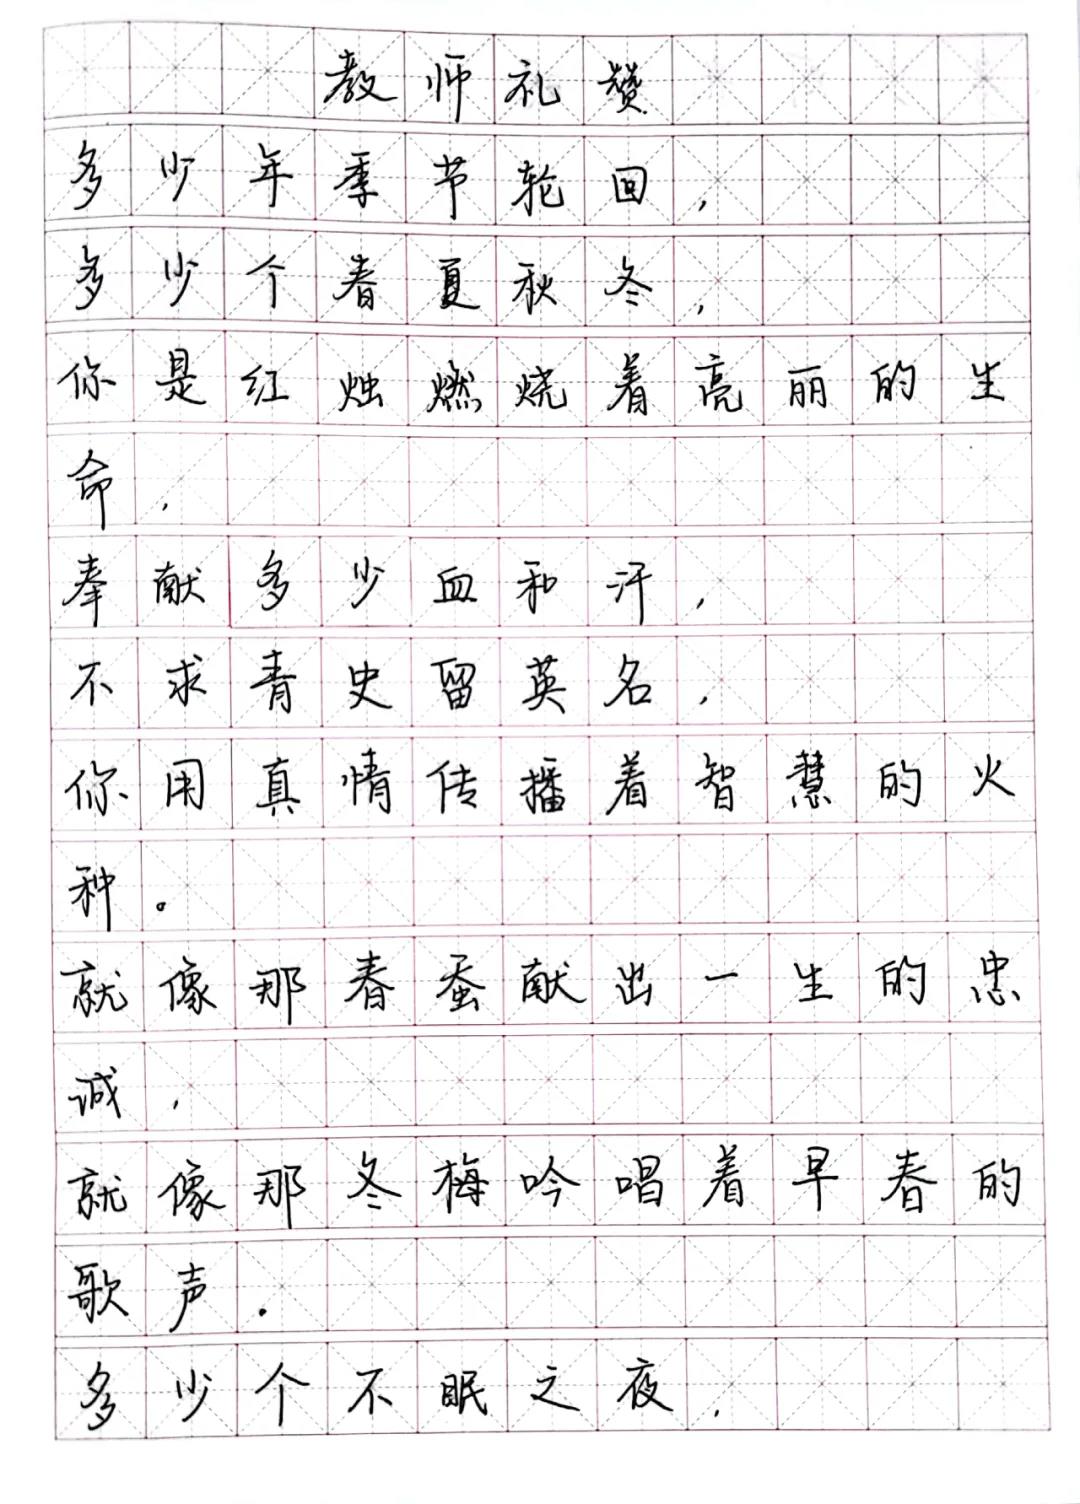 教师礼赞
多少年季节轮回，
多少个春夏秋冬，
你是红烛燃烧着亮丽的生
命，
奉献多少血和汗，
不求青史留英名，
你用真情传播着智慧的火
种。
就像那春蚕献出一生的忠
诚，
就像那冬梅吟唱着早春的
歌声。
多少个不眠之夜，